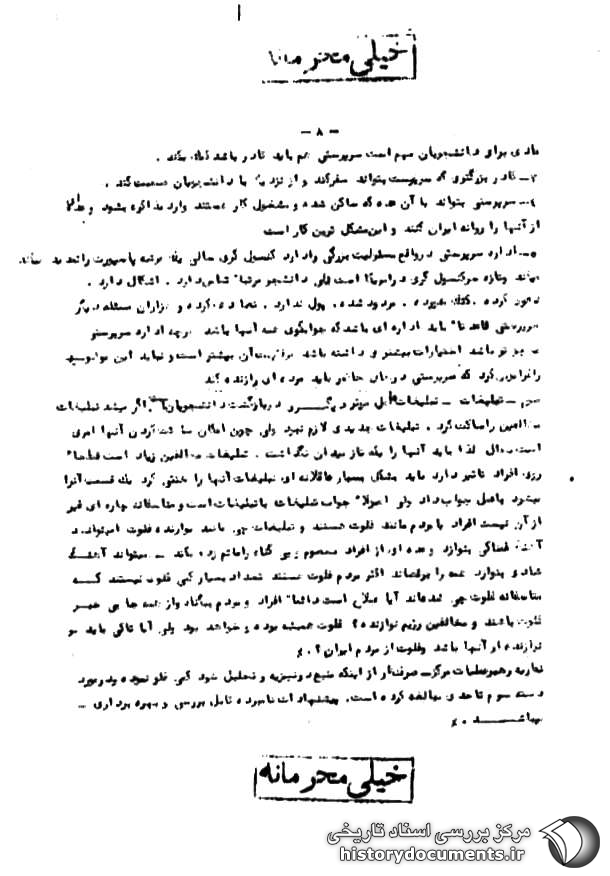 خیلی محرمانه
- ۸ -
مادی برای دانشجویان مهم است سرپرستی هم باید قادر باشد کمک بکند .
۳- کادر بزرگتری که سرپرست بتواند سفر کند و از نزدیک با دانشجویان صحبت کند .
۴- سرپرستی بتواند با آن عده که ساکن شده و مشغول کار هستند وارد مذاکره بشود و
از آنها را روانه ایران کنند و این مشکل ترین کار است
۵- اداره سرپرستی در واقع مسئولیت بزرگی دارد کنسول گری سالی یک مرتبه پاسپورت را تجدید
و تازه سرکنسول گری در امریکا است ولی دانشجو مرتبا" تماس دارد . اشکال دارد .
کرده . مردود شده . پول ندارد . کرده و هزاران مسئله دیگر
سرپرستی قاعدتا" باید اداره ای باشد که جوابگوی همه آنها باشد هرچه اداره سرپرستی
تر باشد اختیارات بیشتری داشته باشد آن بیشتر است و نباید این موضوع
را فراموش کرد که سرپرستی در زمان حاضر باید مرده ای رازنده کند
سوم - تبلیغات - تبلیغات عامل موثر دیگری در بازگشت دانشجویان است اگر میشد تبلیغات
مخالفین را ساکت کرد . تبلیغات جدیدی لازم نبود ولی چون امکان ساکت کردن آنها امری
است محال لذا باید آنها را یکه تاز میدان نگذاشت . تبلیغات مخالفین زیاد است قطعا"
روی افراد تاثیر دارد باید بشکل بسیار عاقلانه ای تبلیغات آنها را خنثی کرد یک قسمت آنرا
میشود با عمل جواب داد ولی اصولا" جواب تبلیغات با تبلیغات است و متاسفانه چاره ای غیر
از آن نیست افراد یا مردم مانند فلوت هستند و تبلیغات چی مانند نوازنده فلوت میتواند
آهنگ غمناکی بنوازد و عده ای از افراد معصوم و بی گناه را ماتم زده کند - میتواند آهنگ
شادی بنوازد همه را برقصاند اکثر مردم فلوت هستند تعداد بسیار کمی فلوت نیستند که
متاسفانه فلوت چی شده‌اند آیا صلاح است دائما" افراد و مردم بیگناه و از همه جا بی خبر
فلوت باشند و مخالفین رژیم نوازنده ؟ فلوت همیشه بوده و خواهد بود ولی آیا تاکی باید
نوازنده از آنها باشد و فلوت از مردم ایران ؟ ./
نظریه رهبر عملیات مرکز - صرفنظر از اینکه منبع در تجزیه و تحلیل خود کمی غلو نموده و در مورد
دسته سوم تا حدی مبالغه کرده است . پیشنهادات نامبرده قابل بررسی و بهره برداری -
میباشد ./
خیلی محرمانه
مرکز بررسی اسناد تاریخی
historydocuments.ir